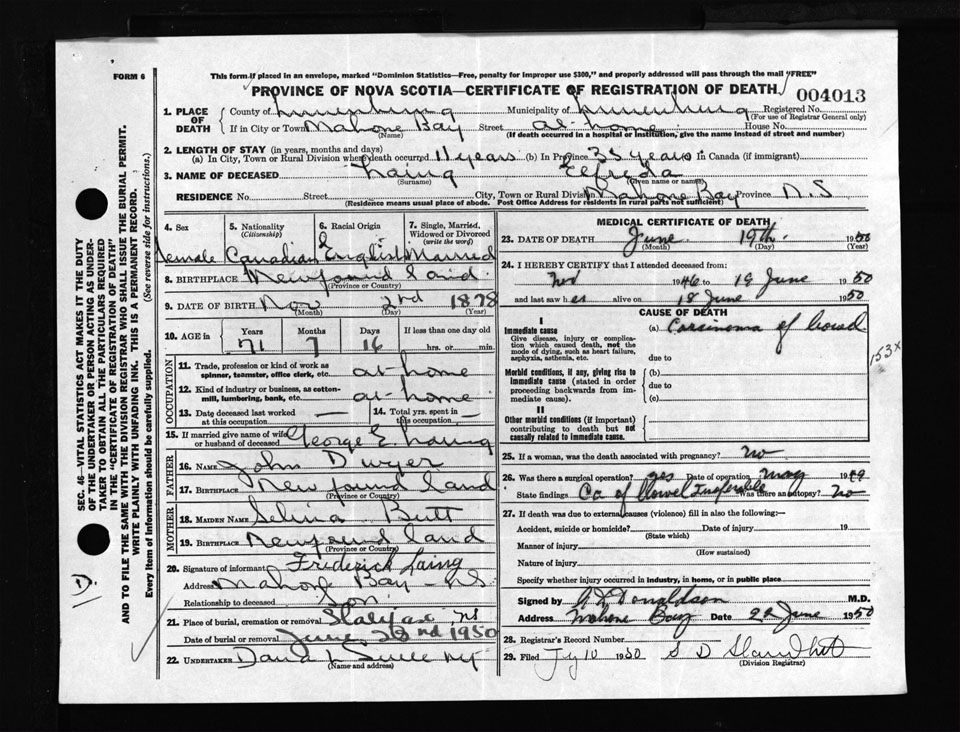 FORM 6
This form if placed in an envelope, marked "Dominion Statistics—Free, penalty for improper use $300," and properly addressed will pass through the mail "FREE"
PROVINCE OF NOVA SCOTIA—CERTIFICATE OF REGISTRATION OF DEATH
004013
1. PLACE OF DEATH
County of Lunenburg Municipality of Lunenburg Registered No.
(For use of Registrar General only)
If in City or Town Mahone Bay Street at-home House No.
(Name) (If death occurred in a hospital or institution, give the name instead of street and number)
2. LENGTH OF STAY (in years, months and days)
(a) In City, Town or Rural Division where death occurred 11 years (b) In Province 35 years In Canada (if immigrant)
3. NAME OF DECEASED Laing Elfreda
(Surname) (Given name or names)
RESIDENCE No. Street City, Town or Rural Division Mahone Bay Province N.S
(Residence means usual place of abode. Post Office Address for residents in rural parts not sufficient)
4. Sex 5. Nationality (Citizenship) 6. Racial Origin 7. Single, Married, Widowed or Divorced (write the word)
Female Canadian English Married
8. BIRTHPLACE Newfoundland
(Province or Country)
9. DATE OF BIRTH Nov 2nd 1878
(Month) (Day) (Year)
10. AGE in Years Months Days If less than one day old
71 7 16 hrs. or min.
OCCUPATION
11. Trade, profession or kind of work as spinner, teamster, office clerk, etc. at-home
12. Kind of industry or business, as cotton-mill, lumbering, bank, etc. at-home
13. Date deceased last worked at this occupation — 14. Total yrs. spent in this occupation —
15. If married give name of wife or husband of deceased George E. Laing
FATHER
16. NAME John Dwyer
17. BIRTHPLACE Newfoundland
(Province or Country)
MOTHER
18. MAIDEN NAME Selina Butt
19. BIRTHPLACE Newfoundland
(Province or Country)
20. Signature of informant Frederick Laing
Address Mahone Bay - N.S.
Relationship to deceased Son
21. Place of burial, cremation or removal Halifax NS
Date of burial or removal June 22nd 1950
22. UNDERTAKER David
(Name and address)
MEDICAL CERTIFICATE OF DEATH
23. DATE OF DEATH June 19th 1950
(Month) (Day) (Year)
24. I HEREBY CERTIFY that I attended deceased from:
Nov 1946 to 19 June 1950
and last saw her alive on 18 June 1950
CAUSE OF DEATH
I
Immediate cause
Give disease, injury or complication which caused death, not the mode of dying, such as heart failure, asphyxia, asthenia, etc.
(a) Carcinoma of bowel
due to
153x
Morbid conditions, if any, giving rise to immediate cause (stated in order proceeding backwards from immediate cause).
(b)
due to
(c)
II
Other morbid conditions (if important) contributing to death but not causally related to immediate cause.
25. If a woman, was the death associated with pregnancy? no
26. Was there a surgical operation? yes Date of operation May 1949
State findings Ca of bowel Inoperable Was there autopsy? No
27. If death was due to external causes (violence) fill in also the following:—
Accident, suicide or homicide? Date of injury 19
(State which)
Manner of injury
(How sustained)
Nature of injury
Specify whether injury occurred in industry, in home, or in public place
Signed by Donaldson M.D.
Address Mahone Bay Date 22 June 1950
28. Registrar's Record Number
29. Filed Jy 10 1950 S D
(Division Registrar)
SEC. 46—VITAL STATISTICS ACT MAKES IT THE DUTY
OF THE UNDERTAKER OR PERSON ACTING AS UNDER-
TAKER TO OBTAIN ALL THE PARTICULARS REQUIRED
IN THE "CERTIFICATE OF REGISTRATION OF DEATH"
AND TO FILE THE SAME WITH THE DIVISION REGISTRAR WHO SHALL ISSUE THE BURIAL PERMIT.
WRITE PLAINLY WITH UNFADING INK. THIS IS A PERMANENT RECORD.
Every item of Information should be carefully supplied. (See reverse side for instructions.)
D.